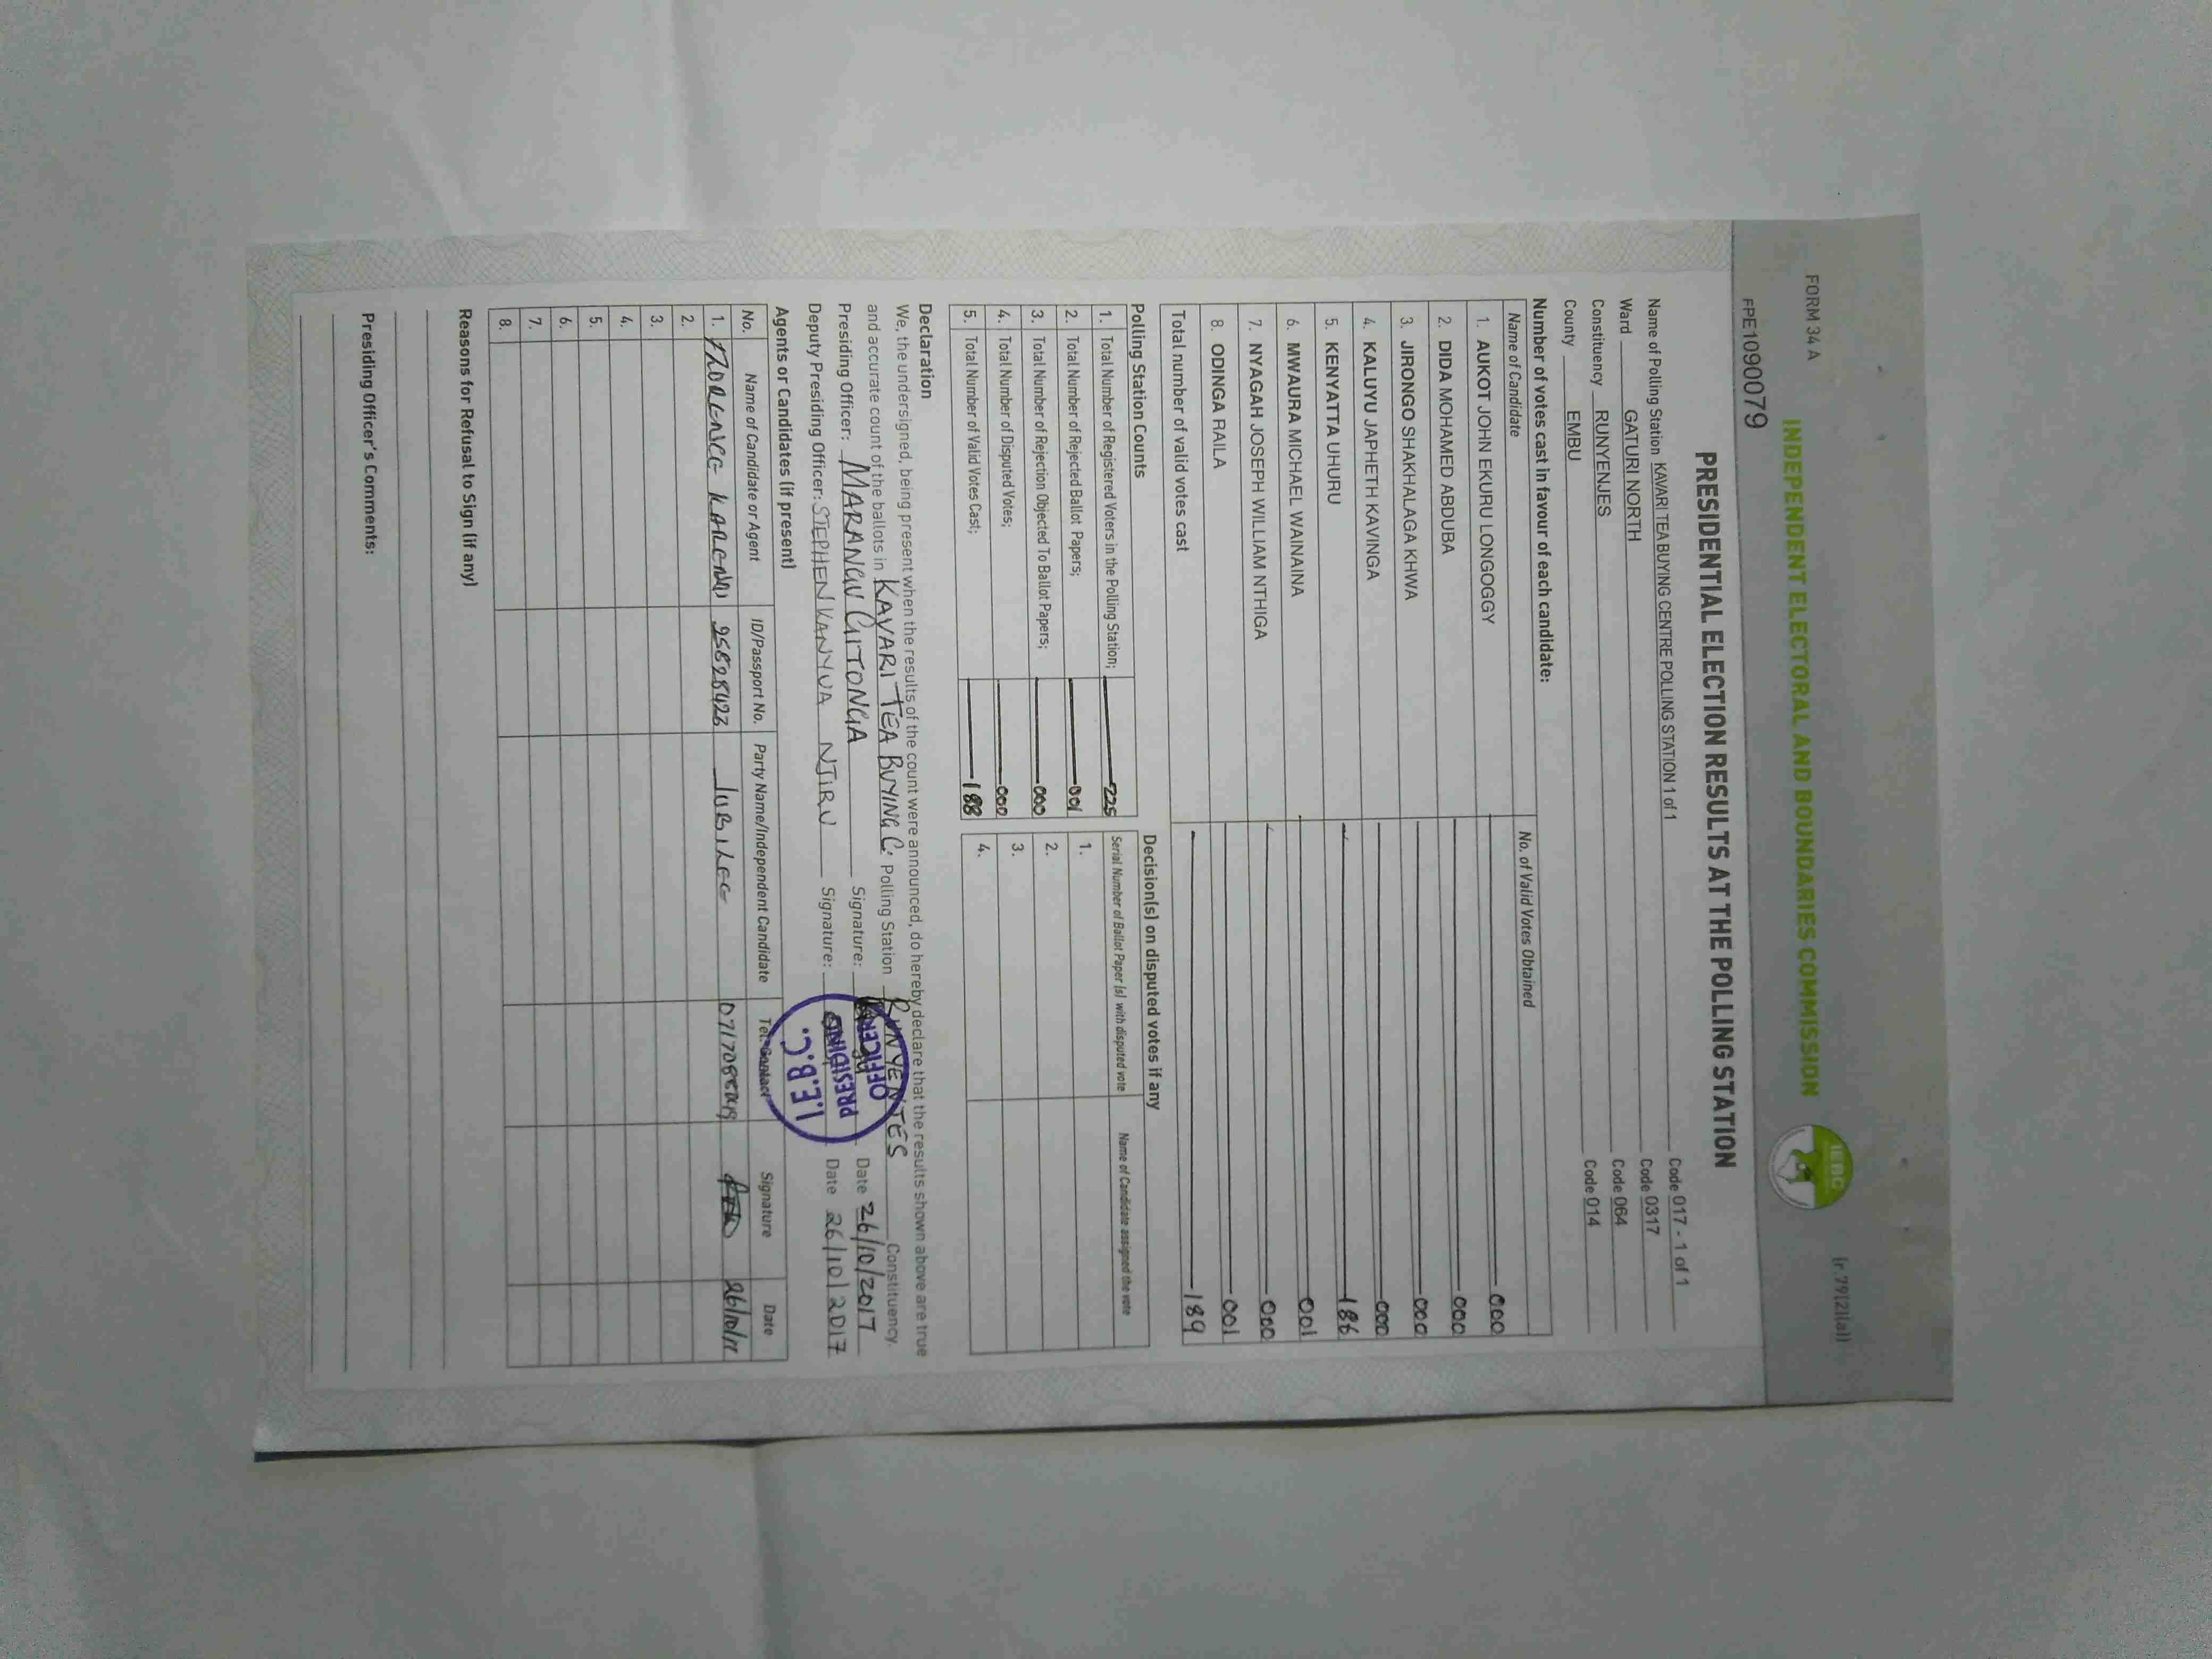 FORM 34 A
(r.79(2)(a))
INDEPENDENT ELECTORAL AND BOUNDARIES COMMISSION
IEBC
FPE1090079
PRESIDENTIAL ELECTION RESULTS AT THE POLLING STATION
Name of Polling Station KAVARI TEA BUYING CENTRE POLLING STATION 1 of 1 Code 017 - 1 of 1
Ward GATURI NORTH Code 0317
Constituency RUNYENJES Code 064
County EMBU Code 014
Number of votes cast in favour of each candidate:
Name of Candidate No. of Valid Votes Obtained
1. AUKOT JOHN EKURU LONGOGGY 000
2. DIDA MOHAMED ABDUBA 000
3. JIRONGO SHAKHALAGA KHWA 000
4. KALUYU JAPHETH KAVINGA 000
5. KENYATTA UHURU 186
6. MWAURA MICHAEL WAINAINA 001
7. NYAGAH JOSEPH WILLIAM NTHIGA 000
8. ODINGA RAILA 001
Total number of valid votes cast 189
Polling Station Counts
1. Total Number of Registered Voters in the Polling Station; 225
2. Total Number of Rejected Ballot Papers; 001
3. Total Number of Rejection Objected To Ballot Papers; 000
4. Total Number of Disputed Votes; 000
5. Total Number of Valid Votes Cast; 188
Decision(s) on disputed votes if any
Serial Number of Ballot Paper (s) with disputed vote Name of Candidate assigned the vote
1.
2.
3.
4.
Declaration
We, the undersigned, being present when the results of the count were announced, do hereby declare that the results shown above are true
and accurate count of the ballots in KAVARI TEA BUYING C. Polling Station RUNYENJES Constituency.
Presiding Officer: MARANGU GITONGA Signature: Date 26/10/2017
Deputy Presiding Officer: STEPHEN KANYUA NJIRU Signature: Date 26/10/2017
I.E.B.C.
PRESIDING
OFFICER
Agents or Candidates (if present)
No. Name of Candidate or Agent ID/Passport No. Party Name/Independent Candidate Tel. Contact Signature Date
1. 25828423 JUBILEE
2.
3.
4.
5.
6.
7.
8.
Reasons for Refusal to Sign (if any)
Presiding Officer's Comments: